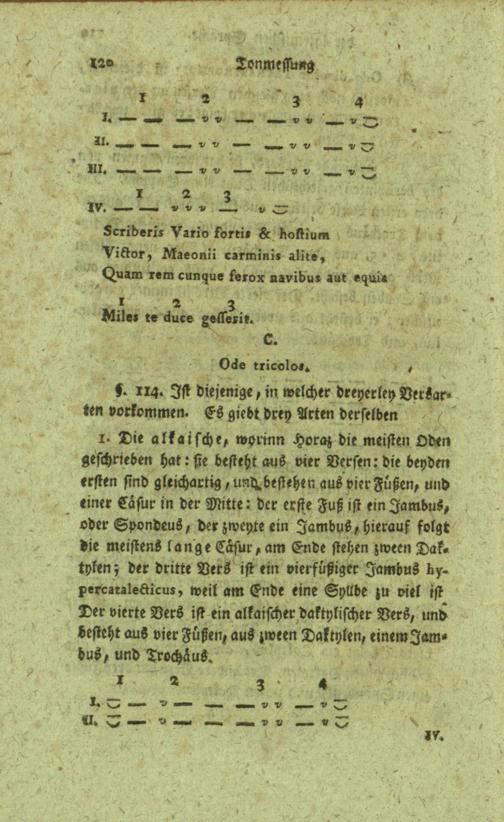 120 Tonmessung
1 2 3 4
I. — — — v v — — v v — v ⏓
II. — — — v v — — v v — v ⏓
III. — — — v v — — v v — v ⏓
1 2 3
IV. — — v v v — v ⏓
Scriberis Vario fortis & hostium
Victor, Maeonii carminis alite,
Quam rem cunque ferox navibus aut equis
1 2 3
Miles te duce gesserit.
C.
Ode tricolos.
§. 114. Ist diejenige, in welcher dreyerley Versar-
ten vorkommen. Es giebt drey Arten derselben
1. Die alkaische, worinn Horaz die meisten Oden
geschrieben hat: sie besteht aus vier Versen: die beyden
ersten sind gleichartig, und bestehen aus vier Füßen, und
einer Cäsur in der Mitte: der erste Fuß ist ein Jambus,
oder Spondeus, der zweyte ein Jambus, hierauf folgt
die meistens lange Cäsur, am Ende stehen zween Dak-
tylen; der dritte Vers ist ein vierfüßiger Jambus hy-
percatalecticus, weil am Ende eine Syllbe zu viel ist
Der vierte Vers ist ein alkaischer daktylischer Vers, und
besteht aus vier Füßen, aus zween Daktylen, einem Jam-
bus, und Trochäus.
1 2 3 4
I. ⏓ — v — — — v v — v ⏓
II. ⏓ — v — — — v v — v ⏓
IV.